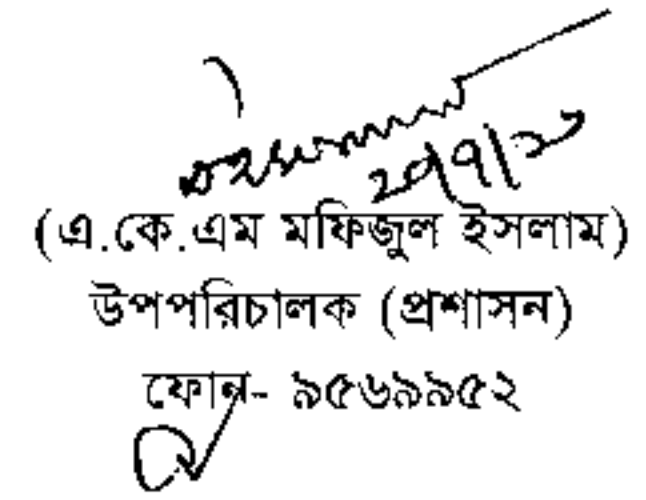 (এ.কে.এম মফিজুল ইসলাম)
উপপরিচালক (প্রশাসন)
ফোন- ৯৫৬৯৯৫২